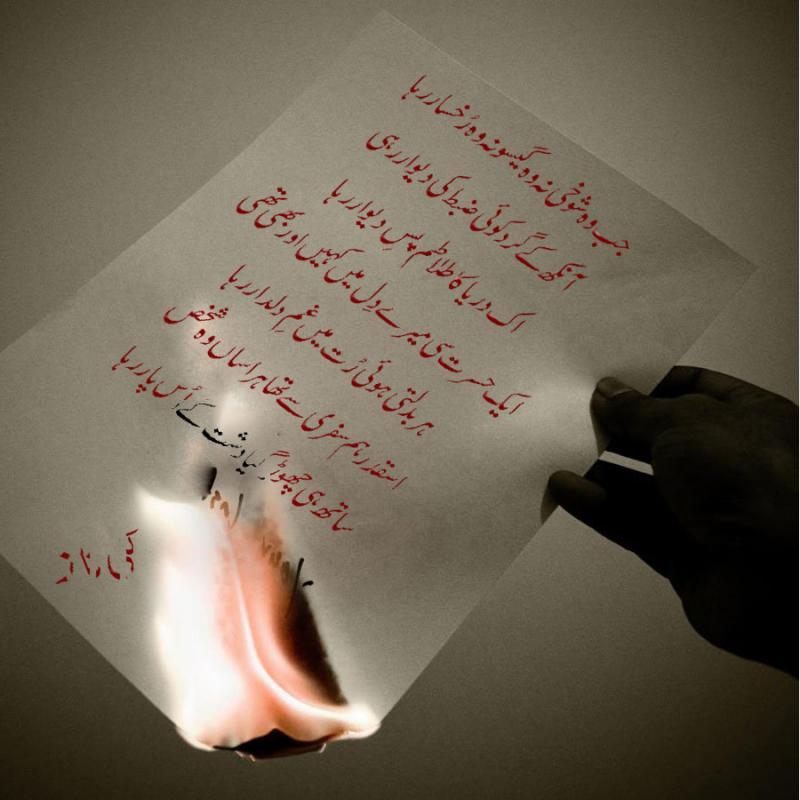 جب وہ شوخی نہ وہ گیسو نہ وہ رُخسار رہا
آنکھ کے گرد کوئی ضبط کی دیوار رہی
اک دریا کا طلاطم پسِ دیوار رہا
ایک حسرت سی میرے دِل میں کہیں اور بھی تھی
ہر بدلتی ہوئی رُت میں غمِ دلدار رہا
اسقدر ہم سفری سے تھا ہراساں وہ شخص
ساتھ ہی چھوڑ گیا دشت کے اُس پار رہا